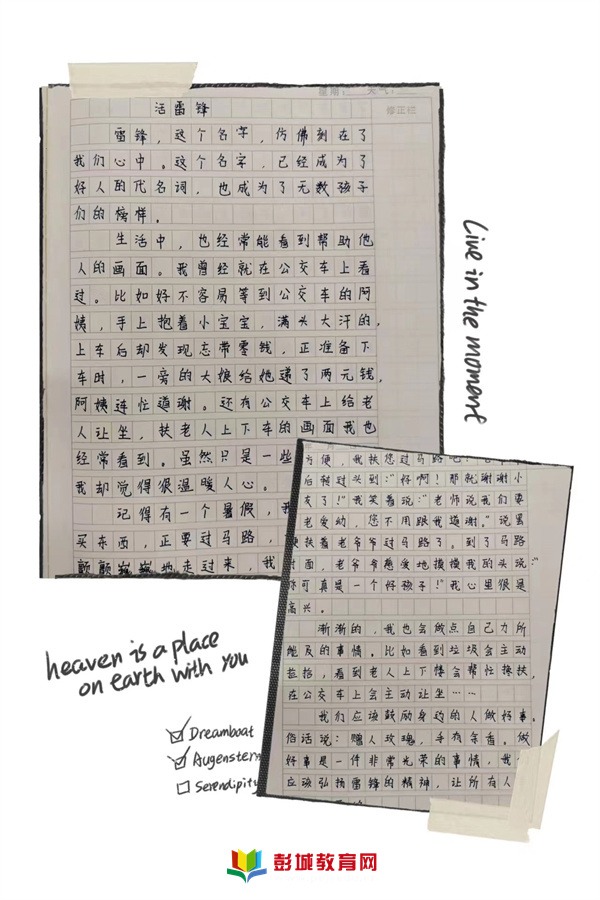 活雷锋
雷锋，这个名字，仿佛刻在了
我们心中。这个名字，已经成为了
好人的代名词，也成为了无数孩子
们的榜样。
生活中，也经常能看到帮助他
人的画面。我曾经就在公交车上看
过。比如好不容易等到公交车的阿
姨，手上抱着小宝宝，满头大汗的，
上车后却发现忘带零钱，正准备下
车时，一旁的大娘给她递了两元钱，
阿姨连忙道谢。还有公交车上给老
人让坐，扶老人上下车的画面我也
经常看到。虽然只是一些
我却觉得很温暖人心。
记得有一个暑假，我
买东西，正要过马路，
颤颤巍巍地走过来，我
方便，我扶您过马路吧！
后转过头到：“好啊！那就谢谢小
友了！”我笑着说：“老师说我们要
老爱幼，您不用跟我道谢。”说罢
便扶着老爷爷过马路了。到了马路
对面，老爷爷慈爱地摸摸我的头说：“
你可真是一个好孩子！”我心里很是
高兴。
渐渐的，我也会做点自己力所
能及的事情。比如看到垃圾会主动
捡拾，看到老人上下楼会帮忙搀扶，
在公交车上会主动让坐……
我们应该鼓励身边的人做好事。
俗话说：赠人玫瑰，手有余香。做
好事是一件非常光荣的事情，我
应该弘扬雷锋的精神，让所有人
Live in the moment
heaven is a place
on earth with you
Dreamboat
Augenstern
Serendipity
彭城教育网